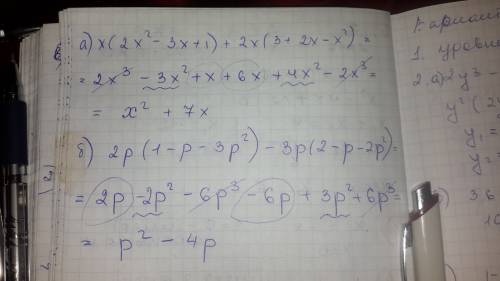 а) x(2x² - 3x + 1) + 2x(3 + 2x - x²) =
= 2x³ - 3x² + x + 6x + 4x² - 2x³ =
= x² + 7x
б) 2p(1 - p - 3p²) - 3p(2 - p - 2p) =
= 2p - 2p² - 6p³ - 6p + 3p² + 6p³ =
= p² - 4p
1. уровн
2. а) 2y3 -
y² (2
y₁ =
3 6